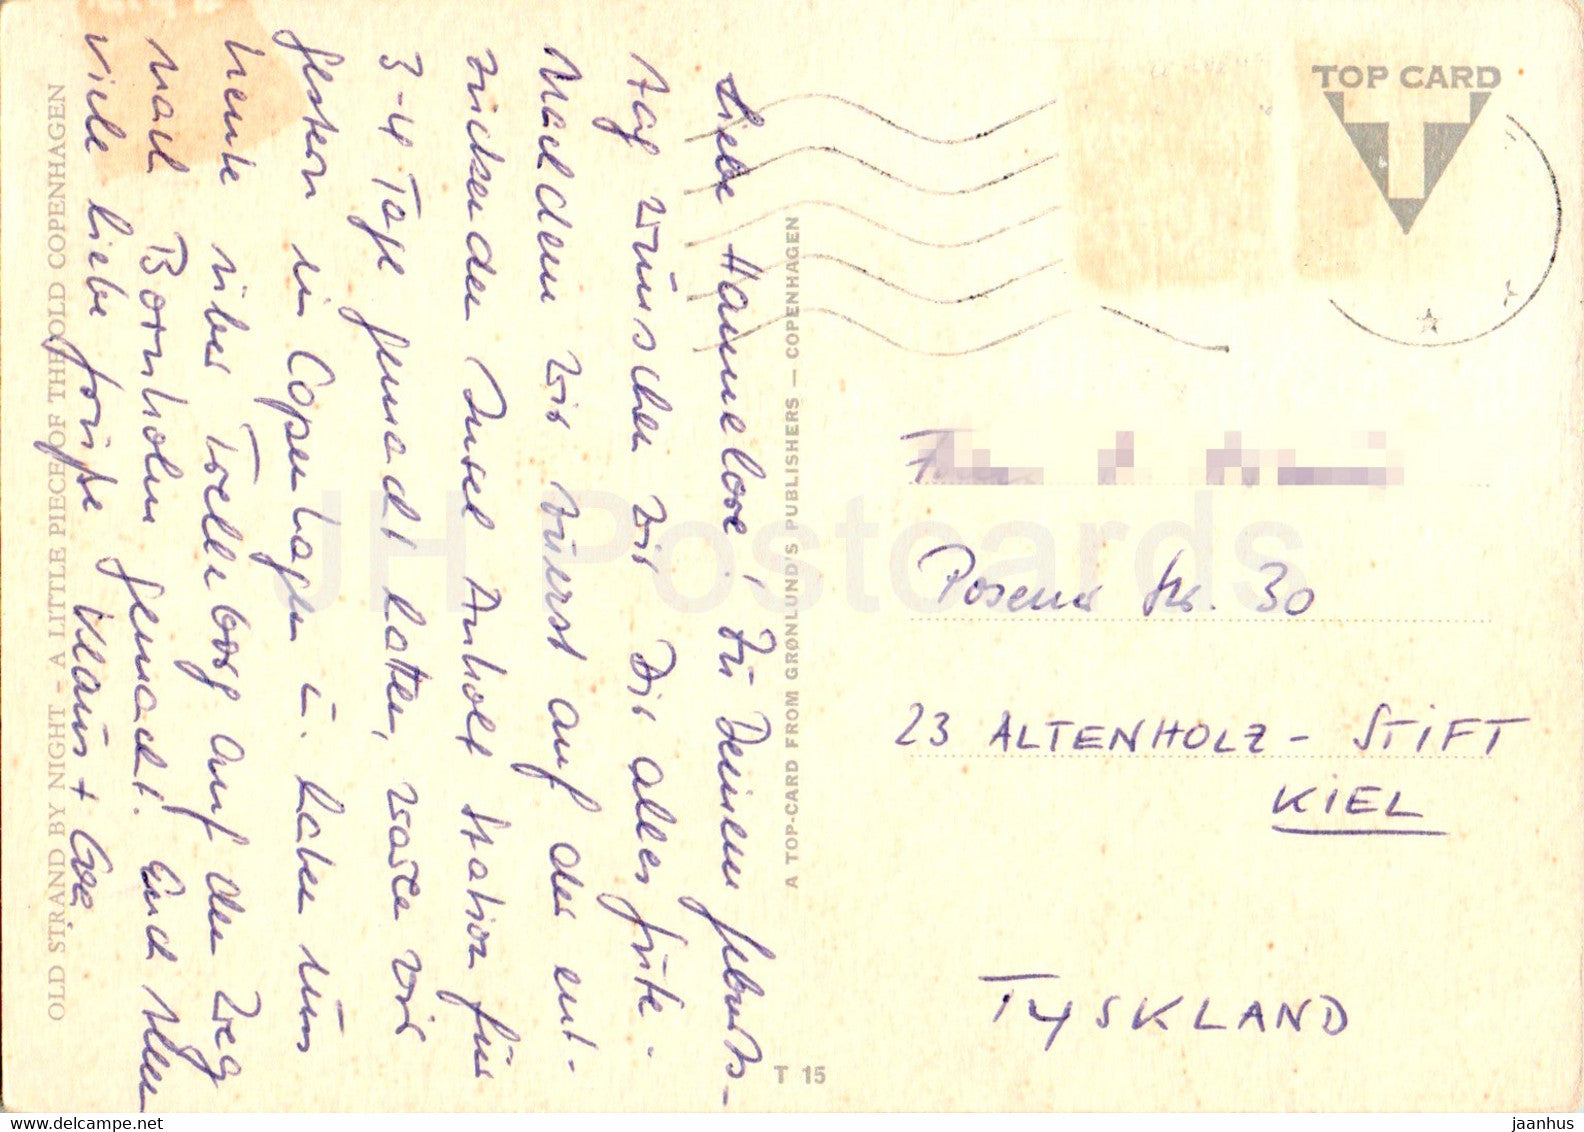 Liebe Hannelore, Zu Deinem Geburts-
tag wünschen wir Dir alles Gute.
Nachdem wir zuerst auf der ent-
zückenden Insel Anholt Station für
3-4 Tage gemacht hatten, waren wir
gestern in Copenhagen u. haben uns
heute über Trelleborg auf den Weg
nach Bornholm gemacht. Euch allen
viele liebe Grüße Klaus +
OLD STRAND BY NIGHT - A LITTLE PIECE OF THE OLD COPENHAGEN
A TOP-CARD FROM GRØNLUND'S PUBLISHERS — COPENHAGEN
T 15
TOP CARD
Posener Str. 30
23 ALTENHOLZ - STIFT
KIEL
TYSKLAND
JH Postcards
www.delcampe.net
jaanhus